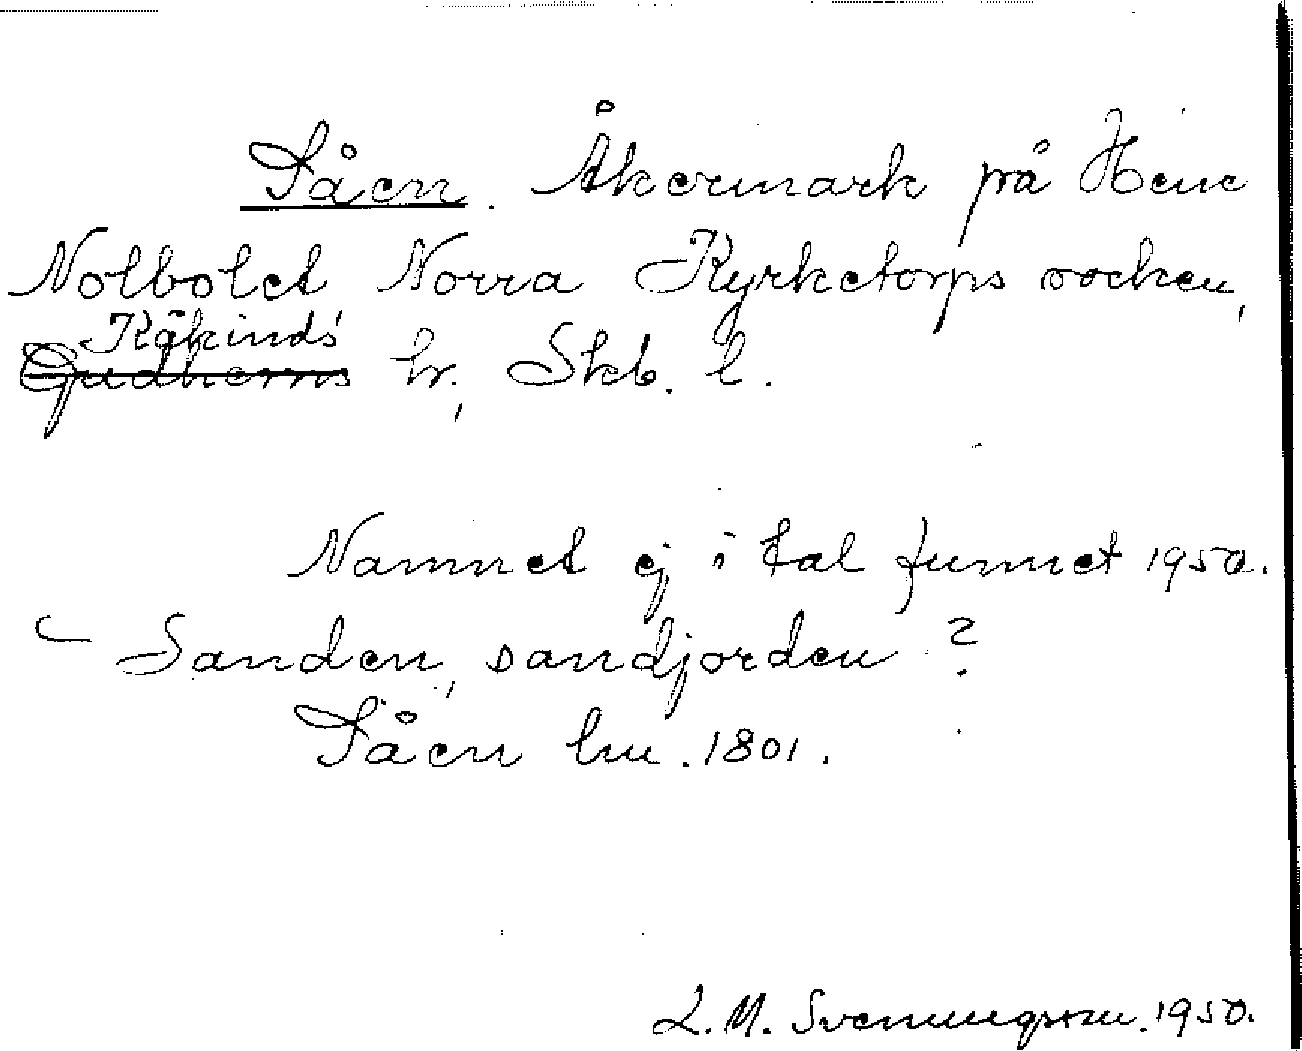 Såen. Åkermark på Hene
Nolbolet Norra Kyrketorps socken,
Kåkinds
Gudhems hr, Skb. l.
Namnet ej i tal funnet 1950.
Sanden, sandjorden?
Såen lm. 1801.
L. M. Svenungsson. 1950.